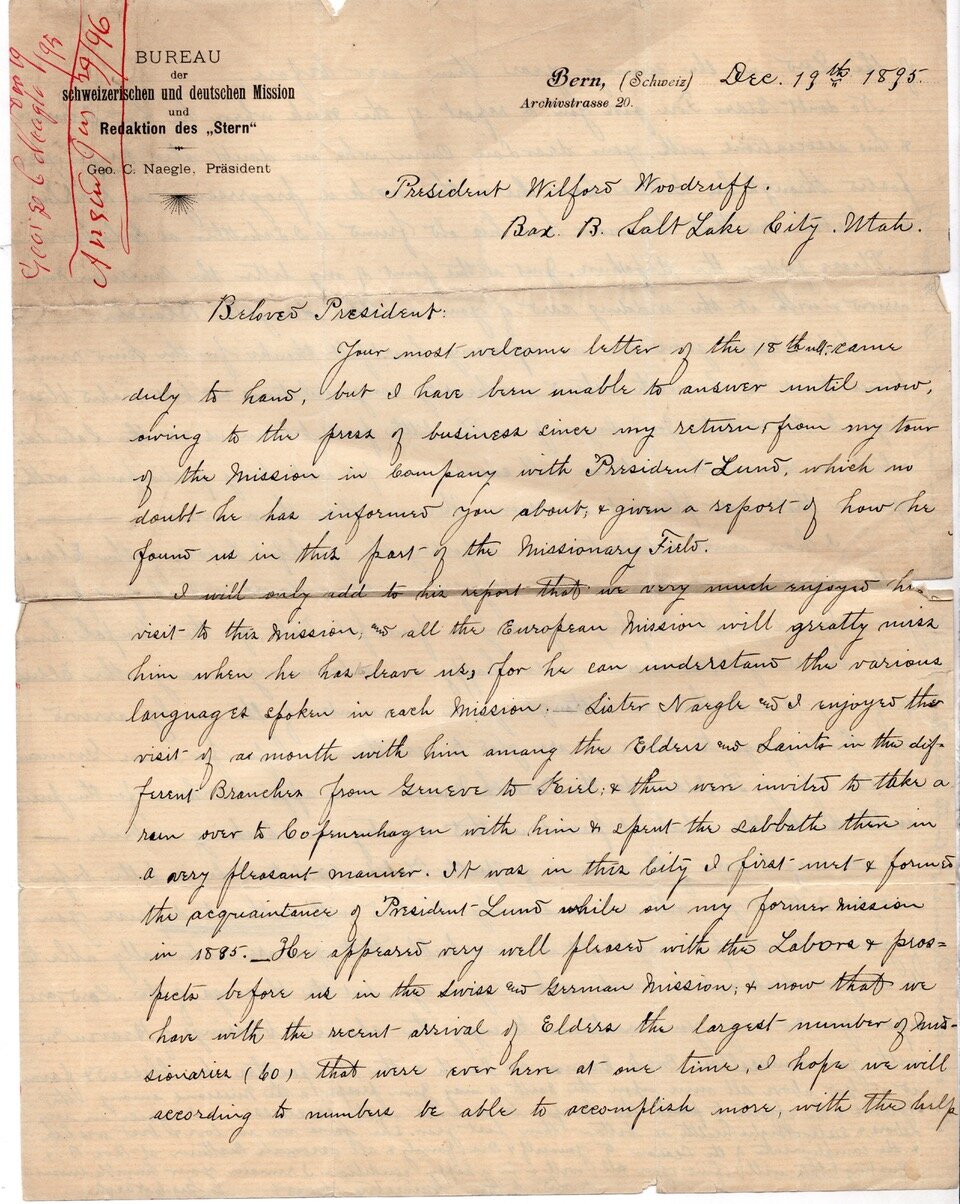 Geo. C. Naegle Dec 19 1/95
Answd Jan 29/96
BUREAU
der
schweizerischen und deutschen Mission
und
Redaktion des „Stern“
Geo. C. Naegle, Präsident
Bern, (Schweiz) Dec. 19th 1895
Archivstrasse 20.
President Wilford Woodruff.
Box B. Salt Lake City. Utah.
Beloved President:
Your most welcome letter of the 18th ult. came
duly to hand, but I have been unable to answer until now,
owing to the press of business since my return, from my tour
of the Mission in Company with President Lund, which no
doubt he has informed you about, & given a report of how he
found us in this part of the Missionary Field.
I will only add to his report that we very much enjoyed his
visit to this Mission, and all the European Mission will greatly miss
him when he has leave us, for he can understand the various
languages spoken in each Mission. — Sister Naegle and I enjoyed the
visit of a month with him among the Elders and Saints in the dif-
ferent Branches from Geneve to Kiel; & then were invited to take a
run over to Copenenhagen with him & spent the Sabbath there in
a very pleasant manner. It was in this City I first met & formed
the acquaintance of President Lund while on my former Mission
in 1885. — He appeared very well pleased with the Labors & pros=
pects before us in the Swiss and German Mission; & now that we
have with the recent arrival of Elders the largest number of Mis-
sionaries (60) that were ever here at one time, I hope we will
according to numbers be able to accomplish more, with the help